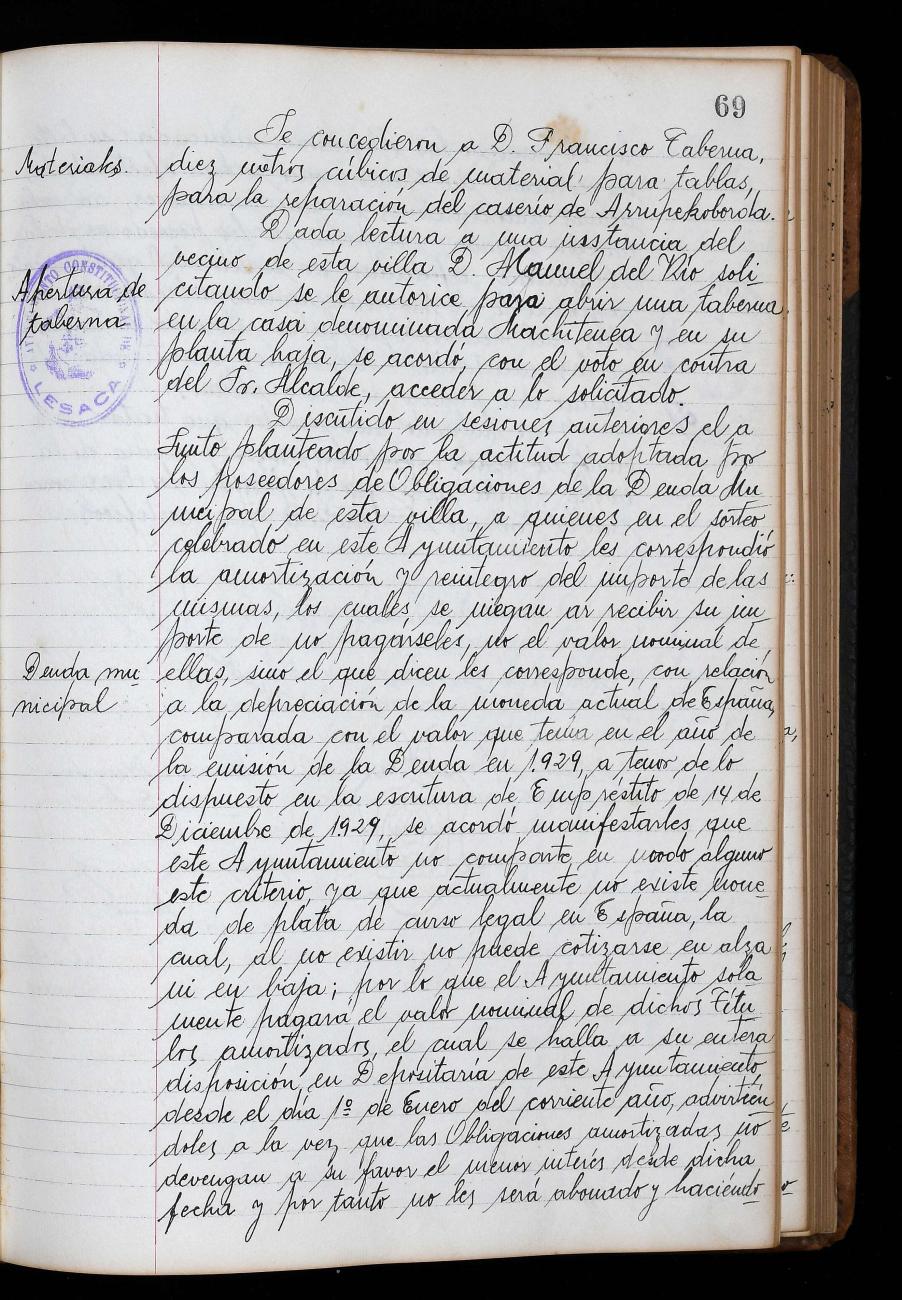 69
Materiales.
Se concedieron a D. Francisco Taberna,
diez metros cúbicos de material para tablas,
para la reparación del caserío de Arrupekoborda.
Dada lectura a una instancia del
Apertura de
taberna
vecino de esta villa D. Manuel del Río soli-
citando se le autorice para abrir una taberna
en la casa denominada Machitenea y en su
planta baja, se acordó, con el voto en contra
del Sr. Alcalde, acceder a lo solicitado.
LESACA
Discutido en sesiones anteriores el a
sunto planteado por la actitud adoptada por
los poseedores de Obligaciones de la Deuda Mu
nicipal de esta villa, a quienes en el sorteo
celebrado en este Ayuntamiento les correspondió
la amortización y reintegro del importe de las
mismas, los cuales, se niegan ar recibir su im
porte de no pagárseles, no el valor nominal de
Deuda mu-
nicipal
ellas, sino el que dicen les corresponde, con relación
a la depreciación de la moneda actual de España,
comparada con el valor que tenía en el año de
la emisión de la Deuda en 1.929, a tenor de lo
dispuesto en la escritura de Empréstito de 14 de
Diciembre de 1929, se acordó manifestarles que
este Ayuntamiento no comparte en modo alguno
este criterio, ya que actualmente no existe mone-
da de plata de curso legal en España, la
cual, al no existir no puede cotizarse en alza
ni en baja; por lo que el Ayuntamiento sola
mente pagará el valor nominal de dichos Títu
los amortizados, el cual se halla a su entera
disposición, en Depositaría de este Ayuntamiento,
desde el día 1º de Enero del corriente año, advirtién
doles a la vez que las Obligaciones amortizadas no
devengan a su favor el menor interés desde dicha
fecha y por tanto no les será abonado y haciendo-